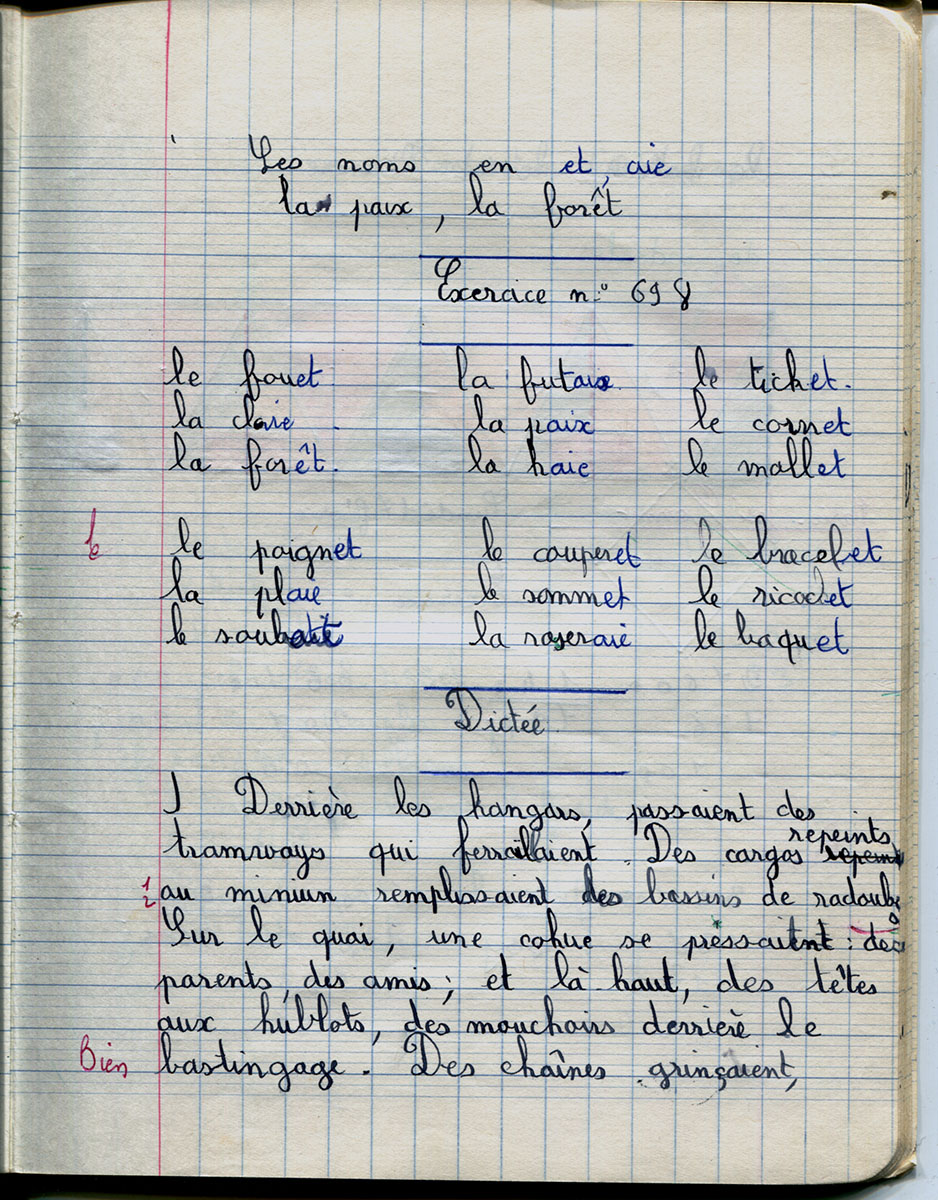 Les noms en et, aie
la paix, la forêt
Exercice n° 698
le fouet la futaie le tichet.
la claie la paix le cornet
la forêt. la haie le mallet
le poignet le couperet le bracelet
la plaie le sommet le ricochet
le souhait la roseraie le baquet
Dictée
Derrière les hangars, passaient des
repeints
tramways qui ferraillaient. Des cargos repeints
1/2 au minium remplissaient des bassins de radoubs
Sur le quai, une cohue se pressaitnt : des
parents, des amis ; et là haut, des têtes
aux hublots, des mouchoirs derrière le
Bien bastingage. Des chaînes grinçaient,